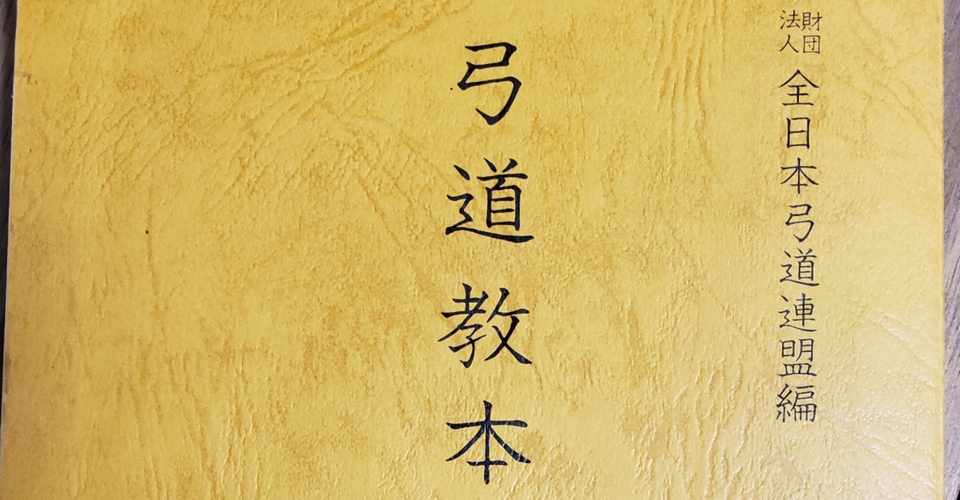 財団法人 全日本弓道連盟編
弓道教本